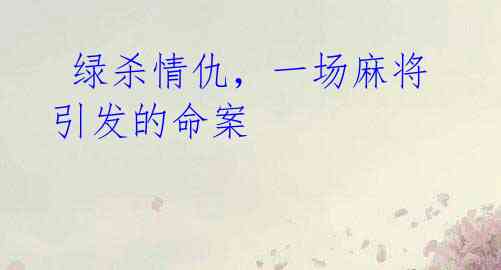 绿杀情仇，一场麻将
引发的命案